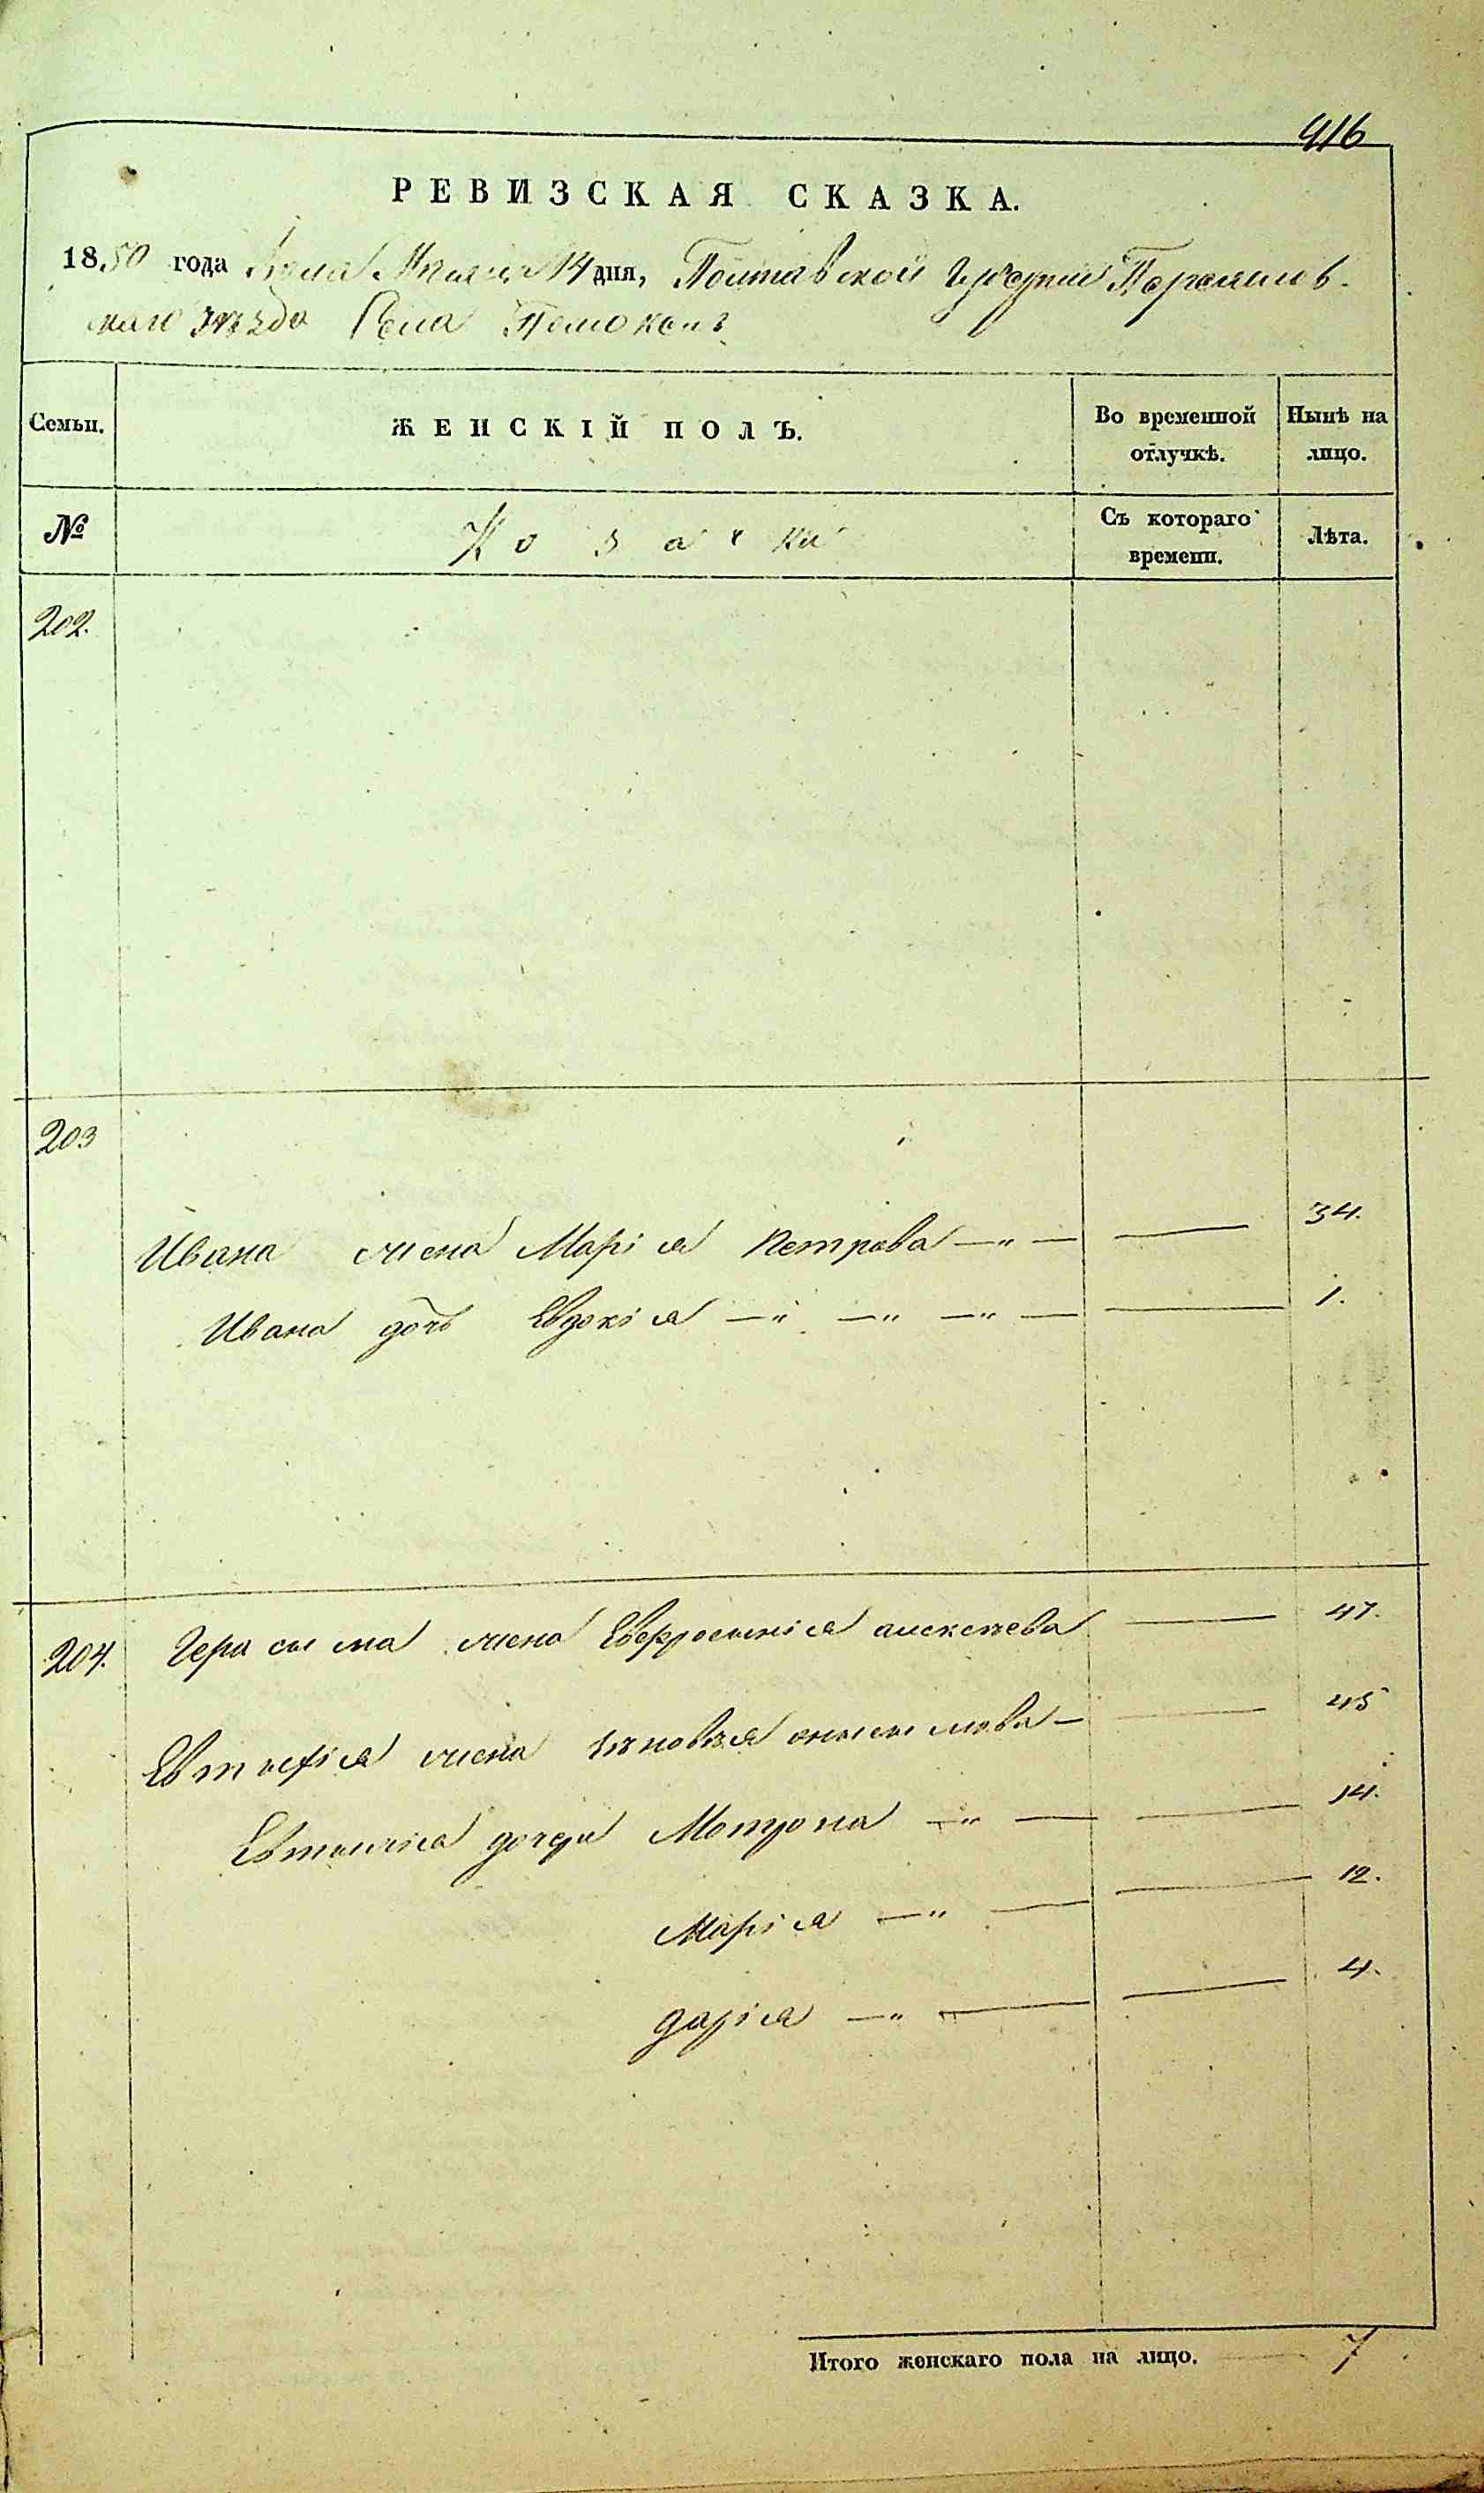 416
РЕВИЗСКАЯ СКАЗКА.
1850 года 14 дня, Полтавской Губерніи Переяслов-
скаго уѣзда Села Помокель
Семьи. ЖЕНСКІЙ ПОЛЪ. Во временной отлучкѣ. Нынѣ на лицо.
№ Козачки Съ котораго времени. Лѣта.
202.
203
Ивана жена Марія Петрова —„— — 34.
Ивана дочь Евдокія —„ —„ —„— — 1.
204. Герасима жена Евфросинія алексѣева — 47.
Евтифія жена Зѣновія анисимова — — 45
Евтифія дочери Мотрона —„— — 14.
Марія —„— — 12.
дарія —„— — 4.
Итого женскаго пола на лицо. 7